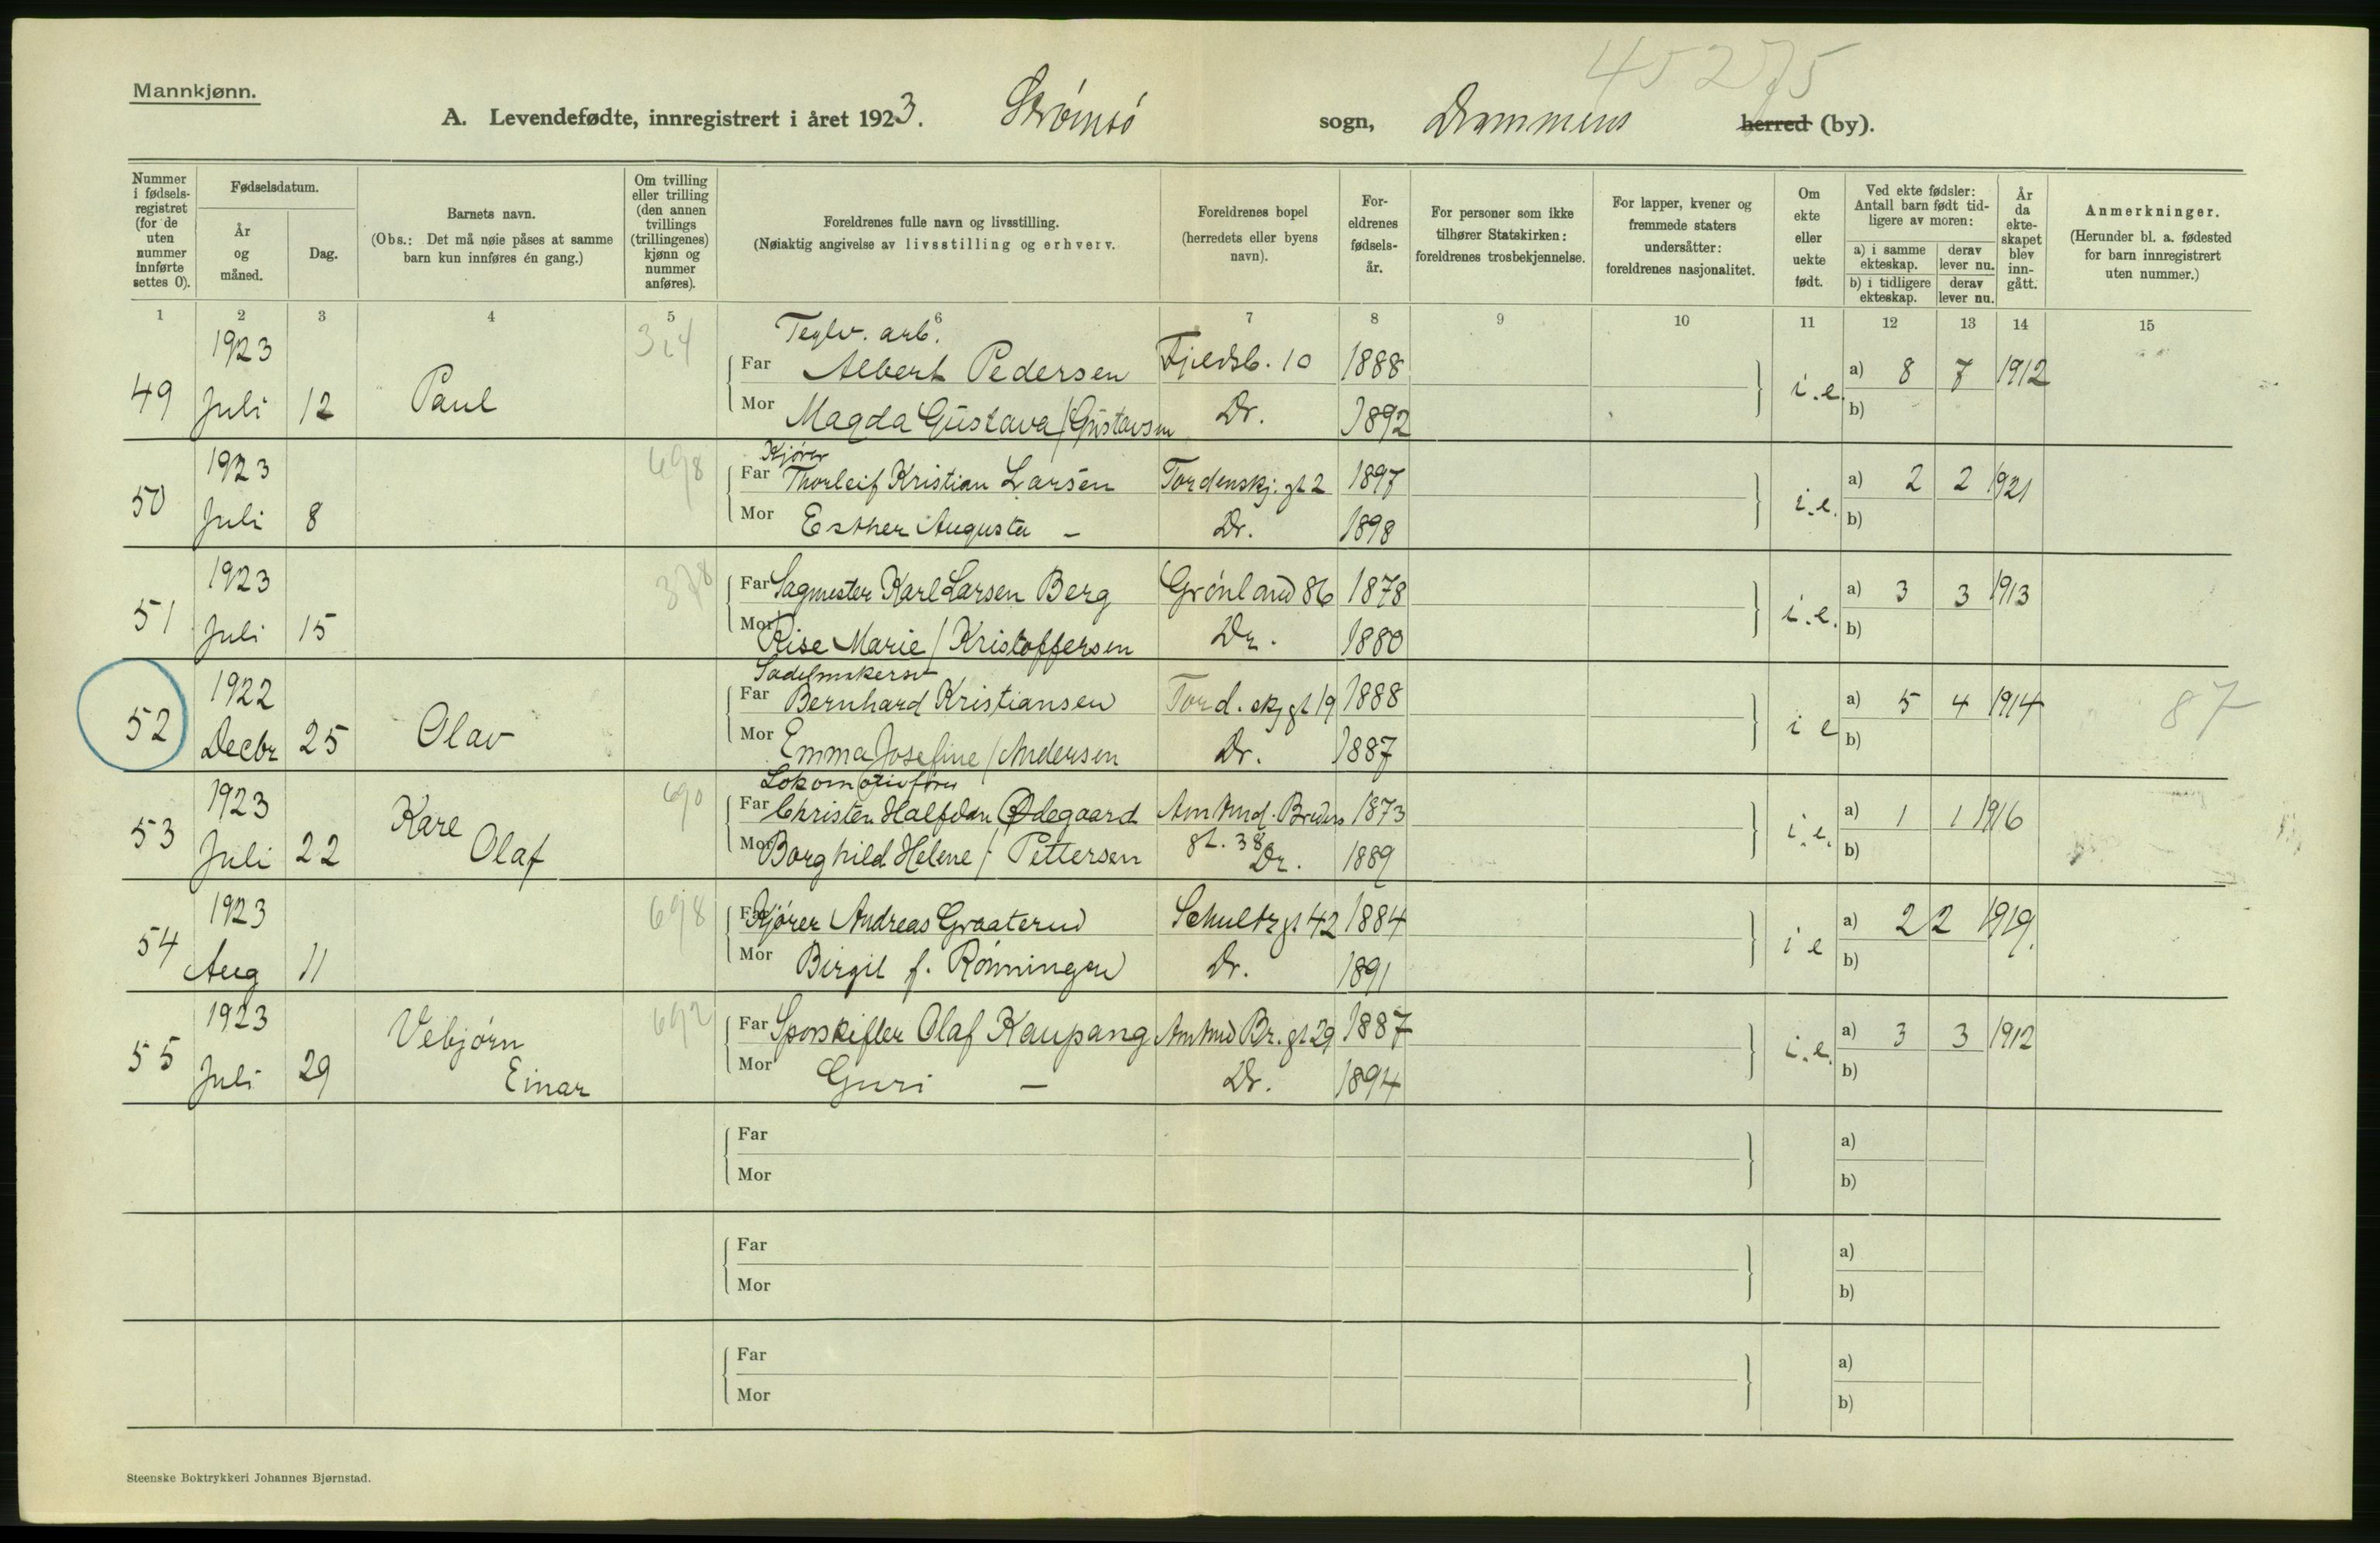 45275
Mannkjønn.
A. Levendefødte, innregistrert i året 1923. Strømsö sogn, Drammens herred (by).
Nummer i fødsels-registret (for de uten nummer innførte settes 0).
Fødselsdatum.
År og måned.
Dag.
Barnets navn.
(Obs.: Det må nøie påses at samme barn kun innføres én gang.)
Om tvilling eller trilling (den annen tvillings (trillingenes) kjønn og nummer anføres).
Foreldrenes fulle navn og livsstilling.
(Nøiaktig angivelse av livsstilling og erhverv.
Foreldrenes bopel (herredets eller byens navn).
For-eldrenes fødsels-år.
For personer som ikke tilhører Statskirken: foreldrenes trosbekjennelse.
For lapper, kvener og fremmede staters undersåtter: foreldrenes nasjonalitet.
Om ekte eller uekte født.
Ved ekte fødsler: Antall barn født tid-ligere av moren:
a) i samme ekteskap. derav lever nu.
b) i tidligere ekteskap. derav lever nu.
År da ekte-skapet blev inn-gått.
Anmerkninger.
(Herunder bl. a. fødested for barn innregistrert uten nummer.)
1 2 3 4 5 6 7 8 9 10 11 12 13 14 15
1923 324 Teglv. arb.
49 Juli 12 Paul Far Albert Pedersen Fjeldsb. 10 1888 i.e. a) 8 7 1912
Mor Magda Gustava / Gustavsen Dr. 1892 b)
1923 698 Kjører
50 Juli 8 Far Thorleif Kristian Larsen Tordenskj. gt 2 1897 i.e. a) 2 2 1921
Mor Esther Augusta – Dr. 1898 b)
1923 378
51 Juli 15 Far Sagmester Karl Larsen Berg Grönland 86 1878 i.e. a) 3 3 1913
Mor Rise Marie / Kristoffersen Dr. 1880 b)
1922 Sadelmakersv
52 Decbr 25 Olav Far Bernhard Kristiansen Tord. skj gt 19 1888 i e a) 5 4 1914 87
Mor Emma Josefine / Andersen Dr. 1887 b)
1923 690 Lokomotivfører
53 Juli 22 Kare Olaf Far Christen Halfdan Ødegaard Amtmd. Breders 1873 i.e. a) 1 1 1916
Mor Borghild Helene / Pettersen gt. 38 Dr. 1889 b)
1923 698
54 Aug 11 Far Kjörer Andreas Graaterud Schultz gt 42 1884 i e a) 2 2 1919.
Mor Birgit f. Rönningen Dr. 1891 b)
1923 692
55 Juli 29 Vebjörn Einar Far Sporskifter Olaf Kaupang Amtmd Br. gt 29 1887 i.e. a) 3 3 1912
Mor Guri – Dr. 1894 b)
Far a)
Mor b)
Far a)
Mor b)
Far a)
Mor b)
Steenske Boktrykkeri Johannes Bjørnstad.